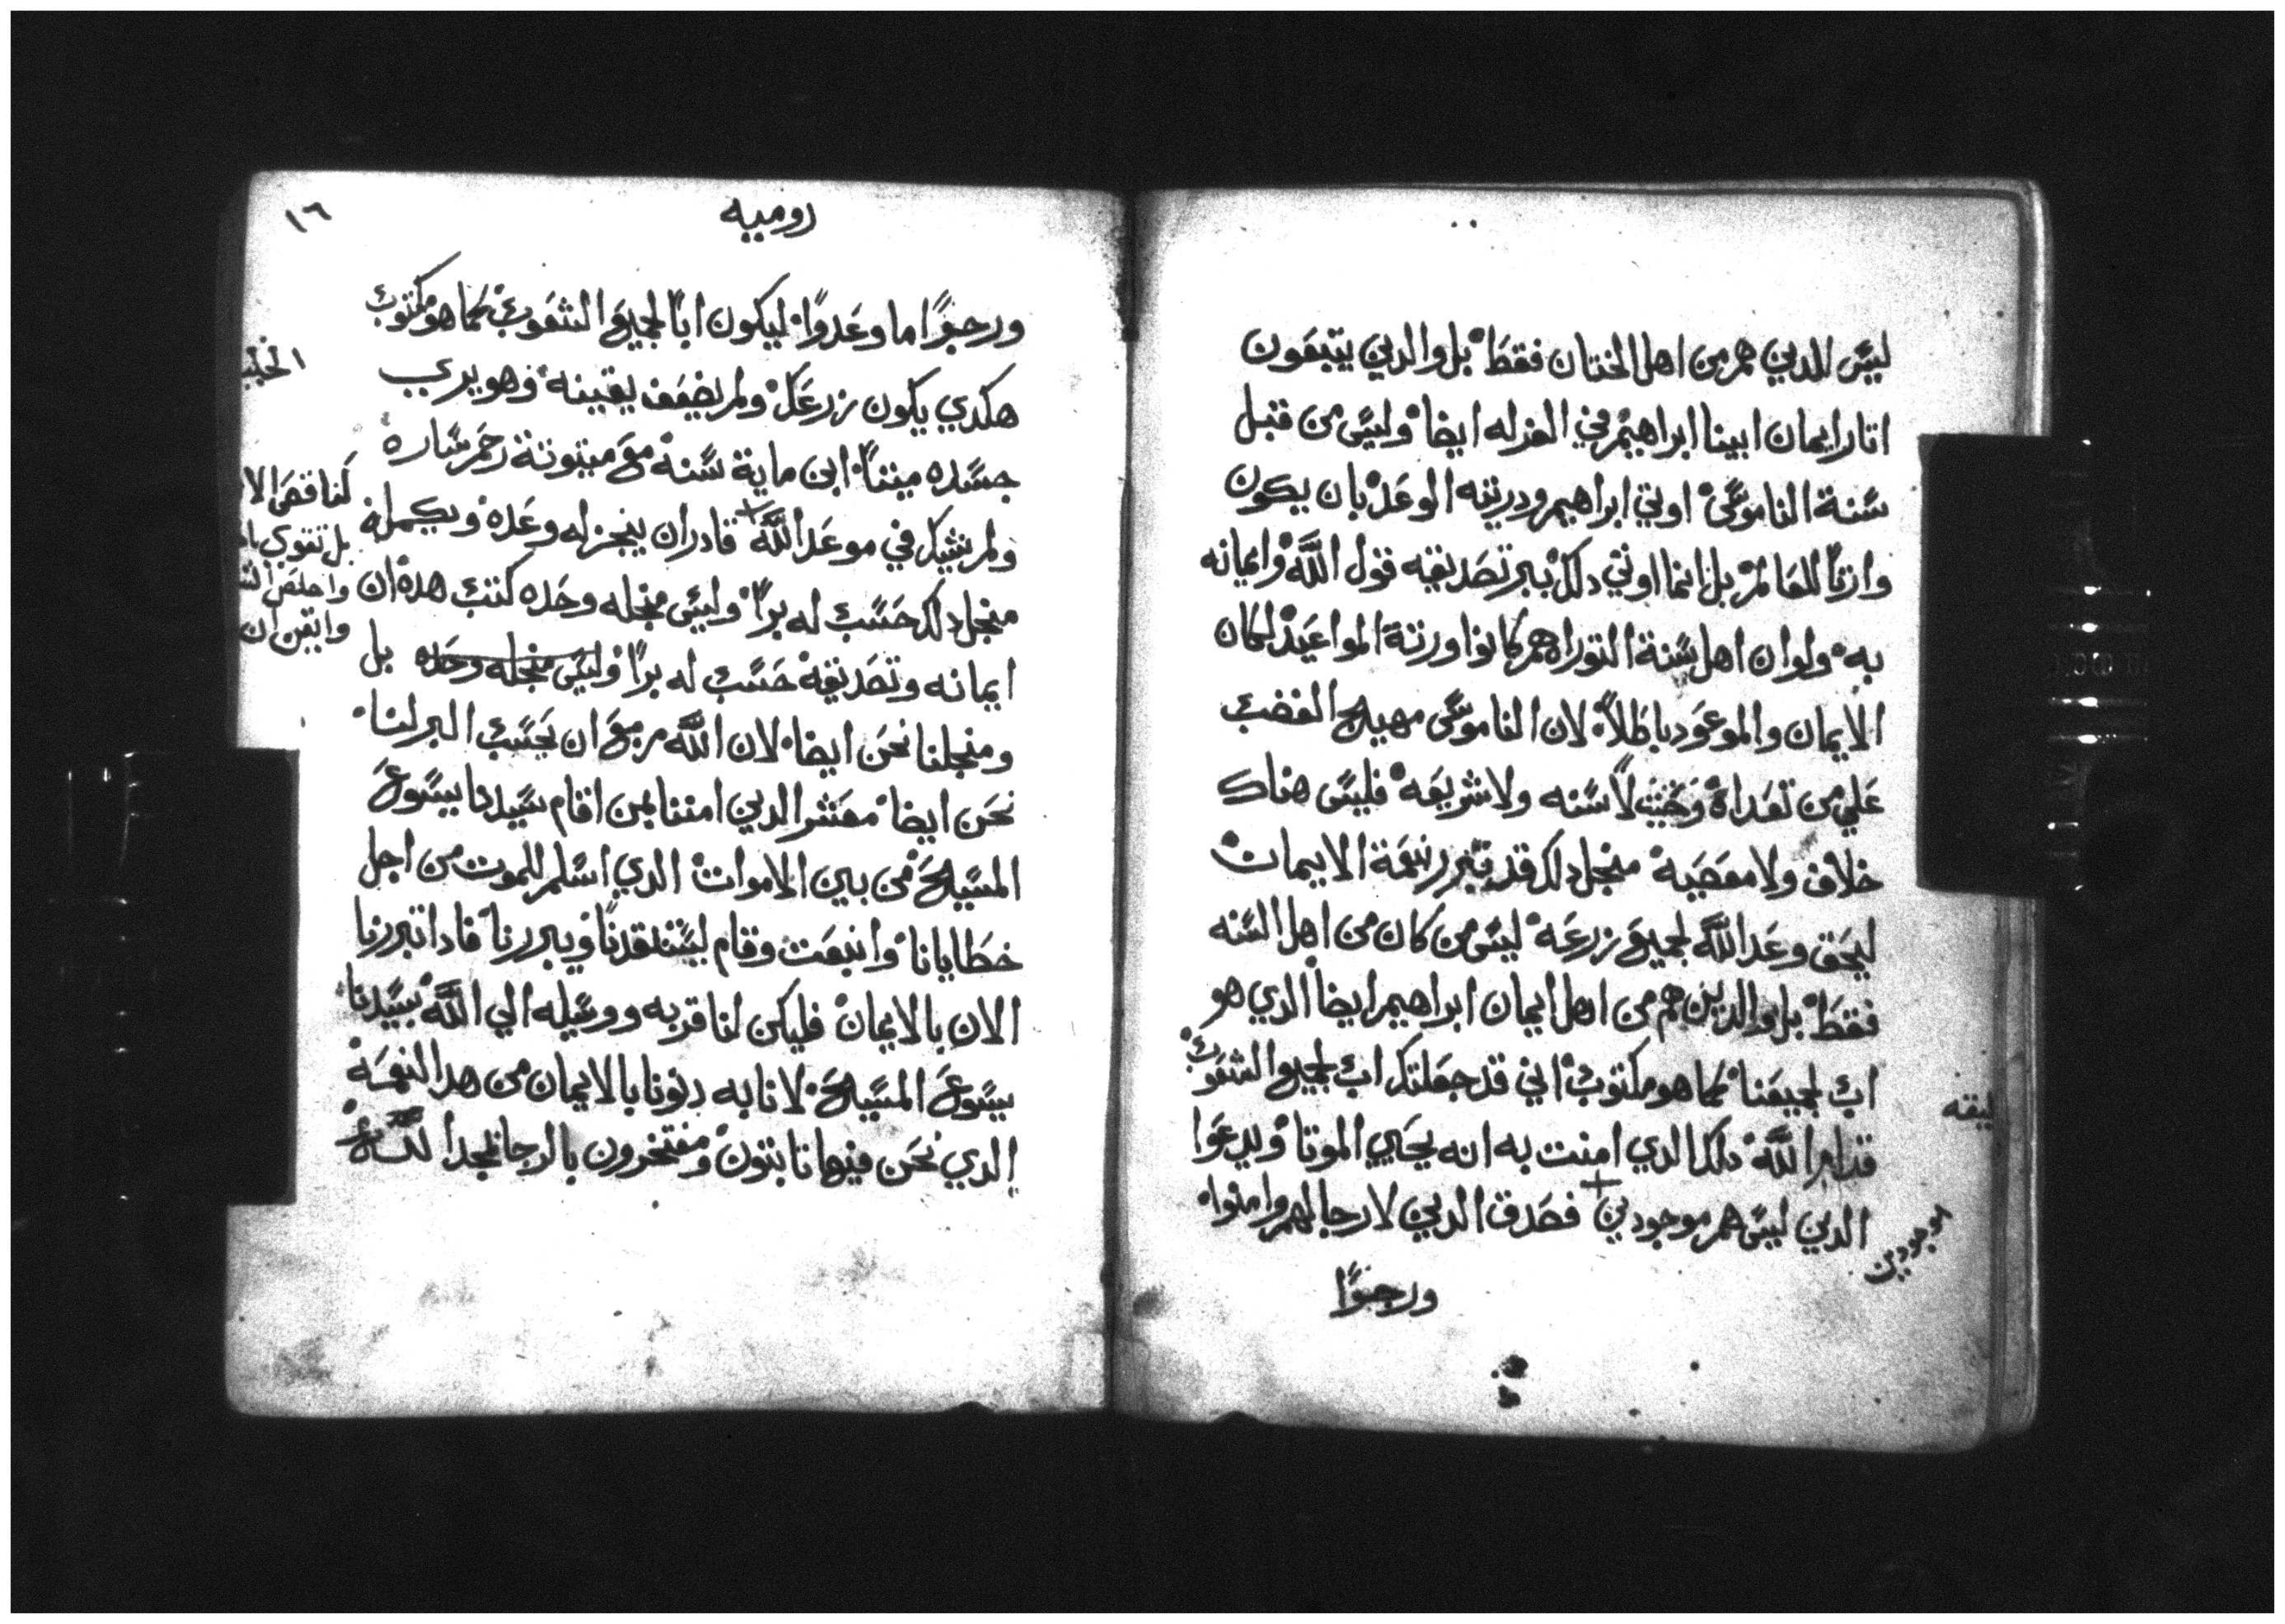 ليس للدين هم من اهل الختان فقط بل والدين يتبعون
اتار ايمان ابينا ابراهيم في العزله ايضا وليس من قبل
سنة الناموس اوتي ابراهيم ودريته الوعد بان يكون
وارتا للعالم بل انما اوتي دلك ببر تصديقه قول الله وايمانه
به ولو ان اهل سنة التوراه هم كانوا ورتة المواعيد لكان
الايمان والموعود باطلا لان الناموس مهيج الغضب
علي من تعداه وحيت لا سنه ولا شريعه فليس هناك
خلاف ولا معصيه منجل دلك قد تبرر بنعمة الايمات
ليحق وعد الله لجميع زرعه ليس من كان من اهل السنه
فقط بل والدين هم من اهل ايمان ابراهيم ايضا الدي هو
اب لجميعنا كما هو مكتوب اني قد جعلتك اب لجميع الشعوب
قدام الله دلك الدي امنت به انه يحيي الموتا ويدعوا
الدين ليس هم موجودين فصدق الدين لا رجا لهم وامنوا
ورجوا
ليقه
موجودين
روميه
١٦
ورجوا ما وعدوا ليكون ابا لجميع الشعوب كما هو مكتوب
هكدي يكون زرعك ولم يضعف يقينه وهو يري
جسده ميتا ابن ماية سنه مع ميتوتة رحم ساره
ولم يشك في موعد الله قادر ان ينجز له وعده ويكمله
منجل دلك حسب له برا وليس منجله وحده كتب هده ان
ايمانه وتصديقه حسب له برا وليس منجله وحده بل
ومنجلنا نحن ايضا لان الله مزمع ان يحسب البر لنا
نحن ايضا معشر الدين امنا بمن اقام سيدنا يسوع
المسيح من بين الاموات الدي اسلم للموت من اجل
خطايانا وانبعت وقام ليستنقدنا ويبررنا فادا تبررنا
الان بالايمان فليكن لنا قربه ووسيله الي الله بسيدنا
يسوع المسيح لانا به دنونا بالايمان من هدا النعمه
الدي نحن فيها تابتون ومفتخرون بالرجا لمجد الله
كناقص الا
بل تقوي با
واخلص
وايقن ان